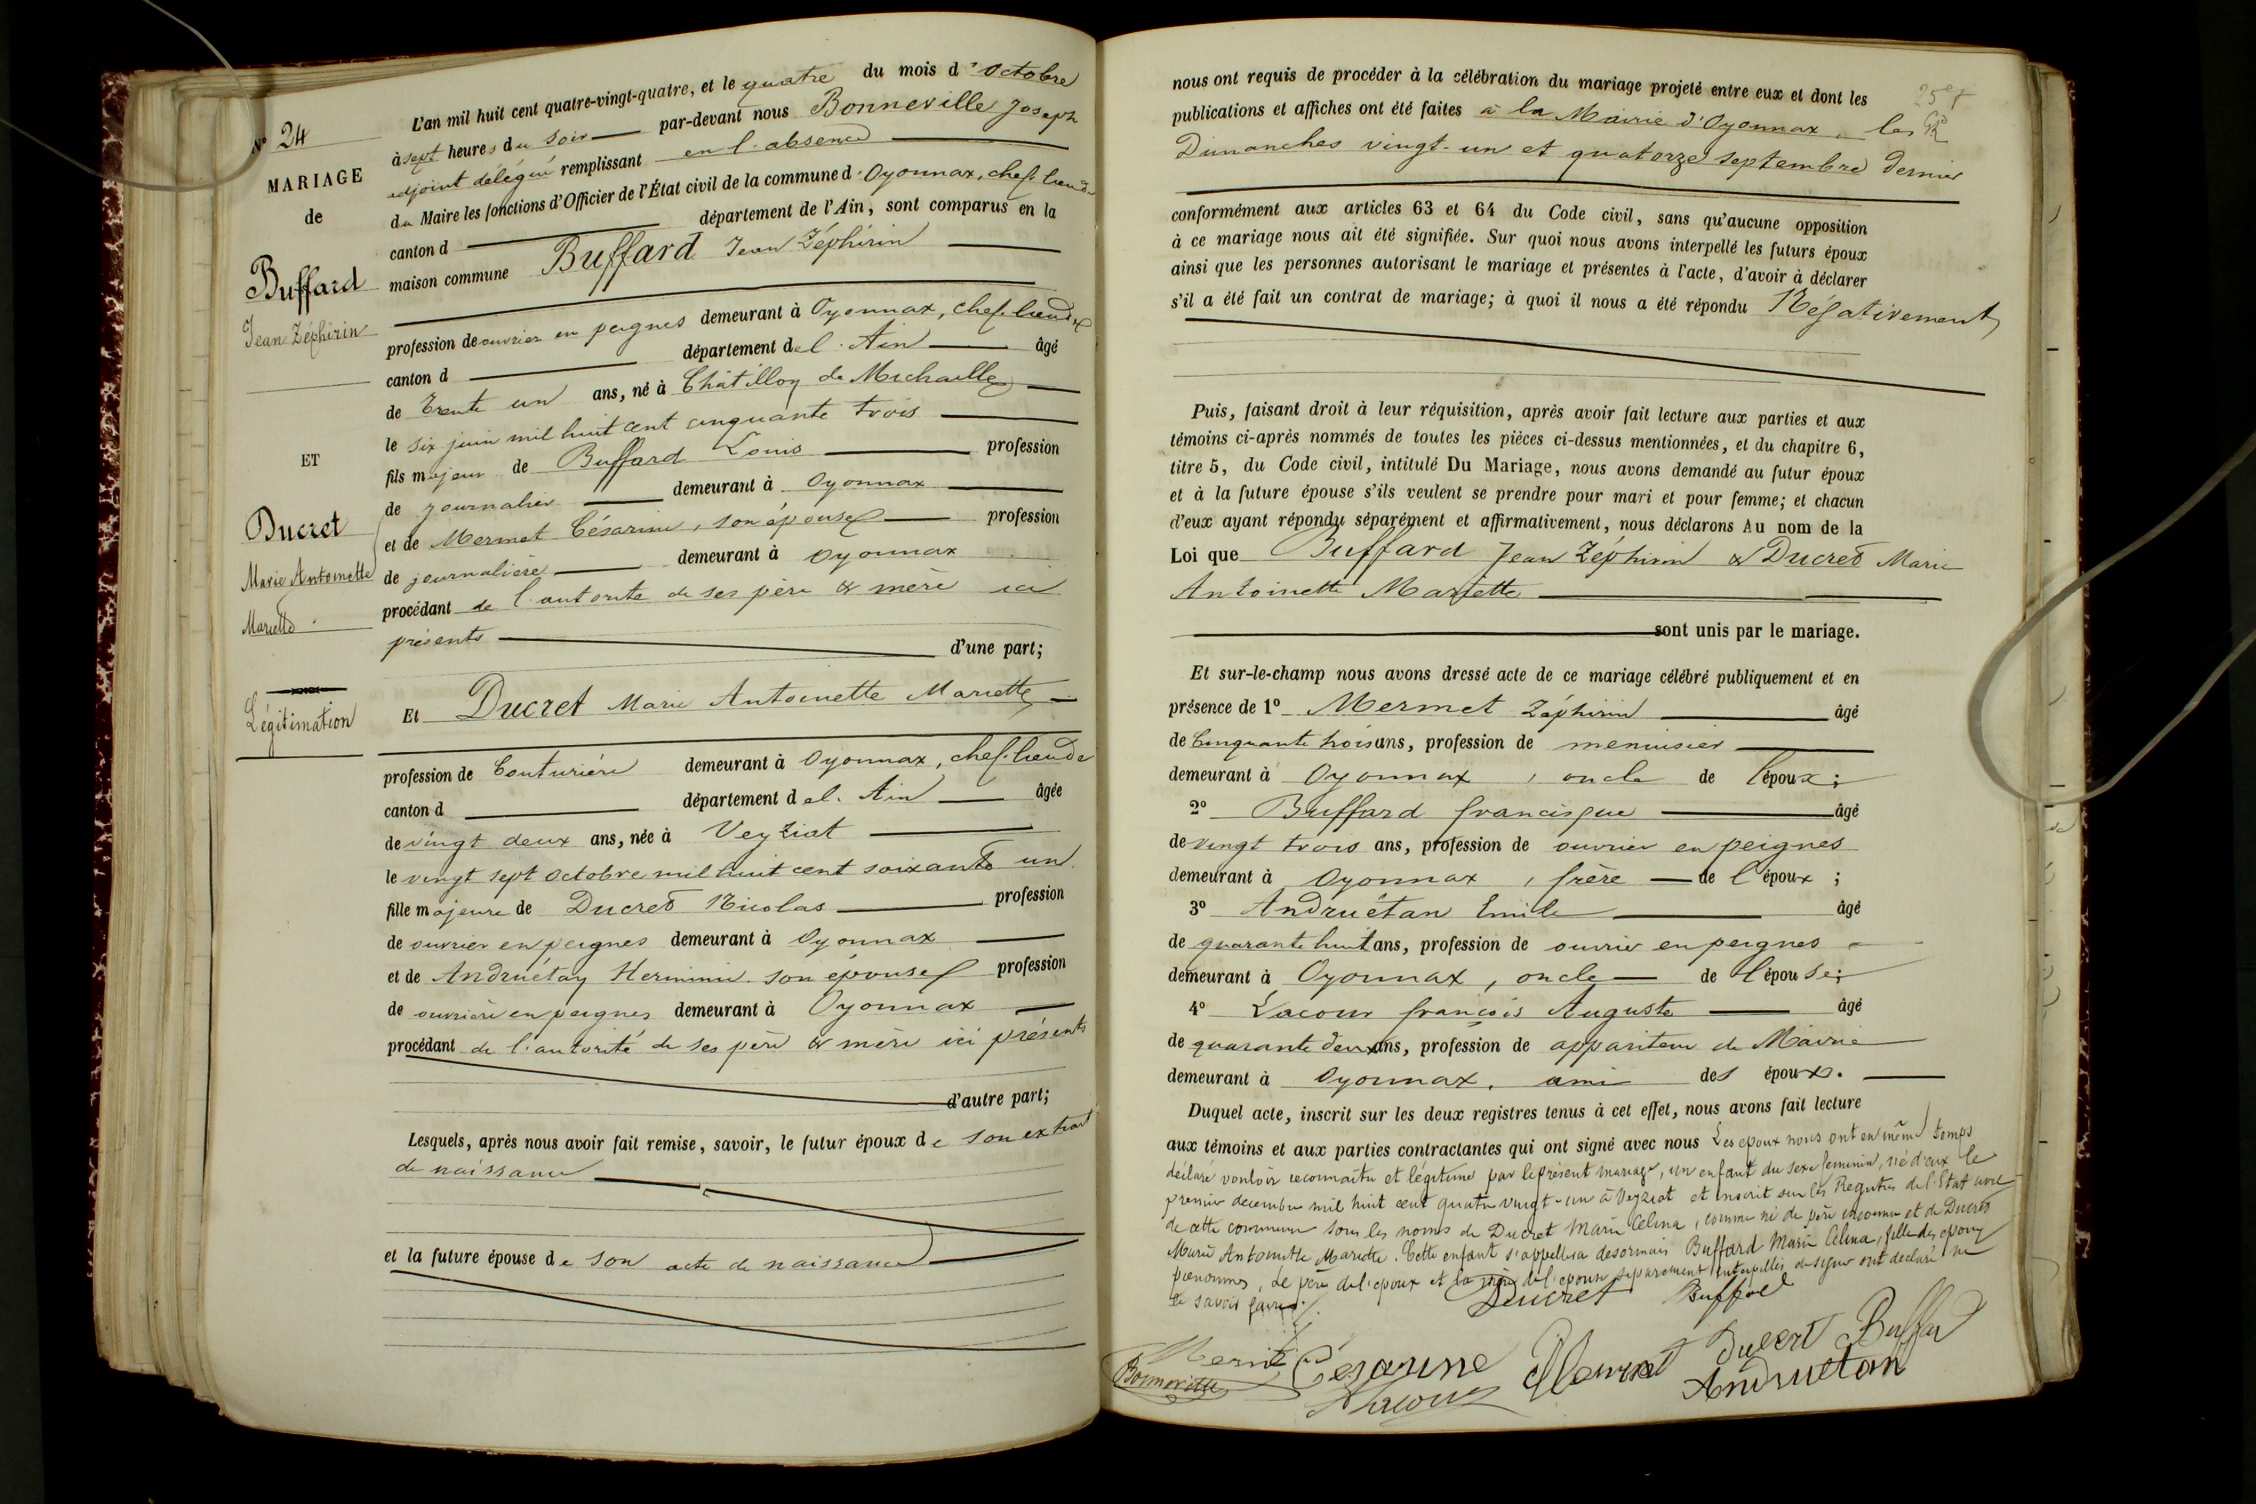 N° 24
MARIAGE
de
Buffard
Jean Zéphirin
ET
Ducret
Marie Antoinette
Mariette
Légitimation
L'an mil huit cent quatre-vingt-quatre, et le quatre du mois d'octobre
à sept heures du soir par-devant nous Bonneville Joseph
adjoint délégué remplissant en l'absence
du Maire les fonctions d'Officier de l'État civil de la commune d'Oyonnax, chef lieu de
canton d département de l'Ain, sont comparus en la
maison commune Buffard Jean Zéphirin
profession de ouvrier en peignes demeurant à Oyonnax, chef lieu de
canton d département de l'Ain âgé
de trente un ans, né à Châtillon de Michaille
le six juin mil huit cent cinquante trois
fils majeur de Buffard Louis profession
de journalier demeurant à Oyonnax
et de Mermet Césarine, son épouse profession
de journalière demeurant à Oyonnax
procédant de l'autorité de ses père & mère ici
présents d'une part;
Et Ducret Marie Antoinette Mariette
profession de Couturière demeurant à Oyonnax, chef lieu de
canton d département de l'Ain âgée
de vingt deux ans, née à Veyziat
le vingt sept octobre mil huit cent soixante un
fille majeure de Ducret Nicolas profession
de ouvrier en peignes demeurant à Oyonnax
et de Andruétan Herminie son épouse profession
de ouvrière en peignes demeurant à Oyonnax
procédant de l'autorité de ses père & mère ici présents
d'autre part;
Lesquels, après nous avoir fait remise, savoir, le futur époux de son extrait
de naissance
et la future épouse de son acte de naissance
nous ont requis de procéder à la célébration du mariage projeté entre eux et dont les
publications et affiches ont été faites à la Mairie d'Oyonnax, les
Dimanches vingt-un et quatorze septembre dernier
conformément aux articles 63 et 64 du Code civil, sans qu'aucune opposition
à ce mariage nous ait été signifiée. Sur quoi nous avons interpellé les futurs époux
ainsi que les personnes autorisant le mariage et présentes à l'acte, d'avoir à déclarer
s'il a été fait un contrat de mariage; à quoi il nous a été répondu Négativement
Puis, faisant droit à leur réquisition, après avoir fait lecture aux parties et aux
témoins ci-après nommés de toutes les pièces ci-dessus mentionnées, et du chapitre 6,
titre 5, du Code civil, intitulé Du Mariage, nous avons demandé au futur époux
et à la future épouse s'ils veulent se prendre pour mari et pour femme; et chacun
d'eux ayant répondu séparément et affirmativement, nous déclarons Au nom de la
Loi que Buffard Jean Zéphirin & Ducret Marie
Antoinette Mariette
sont unis par le mariage.
Et sur-le-champ nous avons dressé acte de ce mariage célébré publiquement et en
présence de 1° Mermet Zéphirin âgé
de Cinquante trois ans, profession de menuisier
demeurant à Oyonnax, oncle de l'époux;
2° Buffard francisque âgé
de vingt trois ans, profession de ouvrier en peignes
demeurant à Oyonnax, frère de l'époux;
3° Andruétan Emile âgé
de quarante huit ans, profession de ouvrier en peignes
demeurant à Oyonnax, oncle de l'épouse;
4° Lacour françois Auguste âgé
de quarante deux ans, profession de appariteur de Mairie
demeurant à Oyonnax, ami des époux.
Duquel acte, inscrit sur les deux registres tenus à cet effet, nous avons fait lecture
aux témoins et aux parties contractantes qui ont signé avec nous Les époux nous ont en même temps
déclaré vouloir reconnaître et légitimer par le présent mariage, un enfant du sexe féminin, né d'eux le
premier décembre mil huit cent quatre vingt-un à Veyziat et inscrit sur les Registres de l'État civil
de cette commune sous les noms de Ducret Marie Célina, comme né de père inconnu et de Ducret
Marie Antoinette Mariette. Cette enfant s'appellera désormais Buffard Marie Célina, fille des époux
prénommés. Le père de l'époux et la mère de l'épouse séparément interpellés de signer ont déclaré ne
le savoir faire.
Ducret
Mermet Césarine Mermet Ducret Buffard
Bonneville Lacour Andruétan